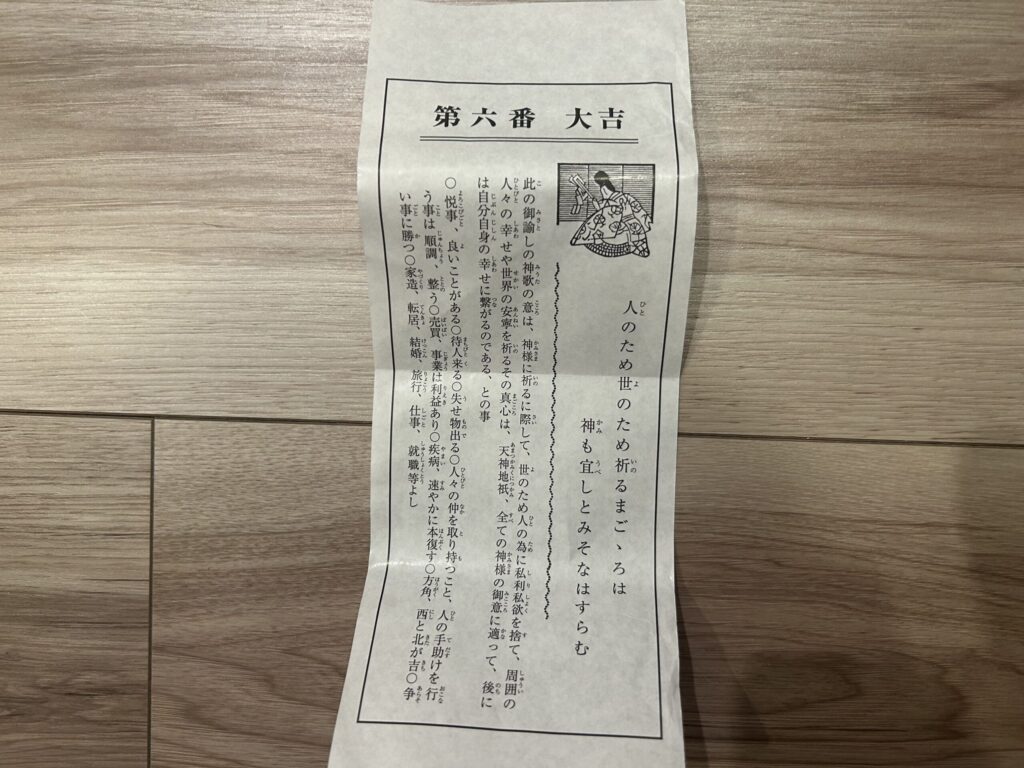 第六番 大吉
人のため世のため祈るまごゝろは
神も宜しとみそなはすらむ
此の御諭しの神歌の意は、神様に祈るに際して、世のため人の為に私利私欲を捨て、周囲の
人々の幸せや世界の安寧を祈るその真心は、天神地祇、全ての神様の御意に適って、後に
は自分自身の幸せに繋がるのである、との事
○悦事、良いことがある○待人来る○失せ物出る○人々の仲を取り持つこと、人の手助けを行
う事は順調、整う○売買、事業は利益あり○疾病、速やかに本復す○方角、西と北が吉○争
い事に勝つ○家造、転居、結婚、旅行、仕事、就職等よし